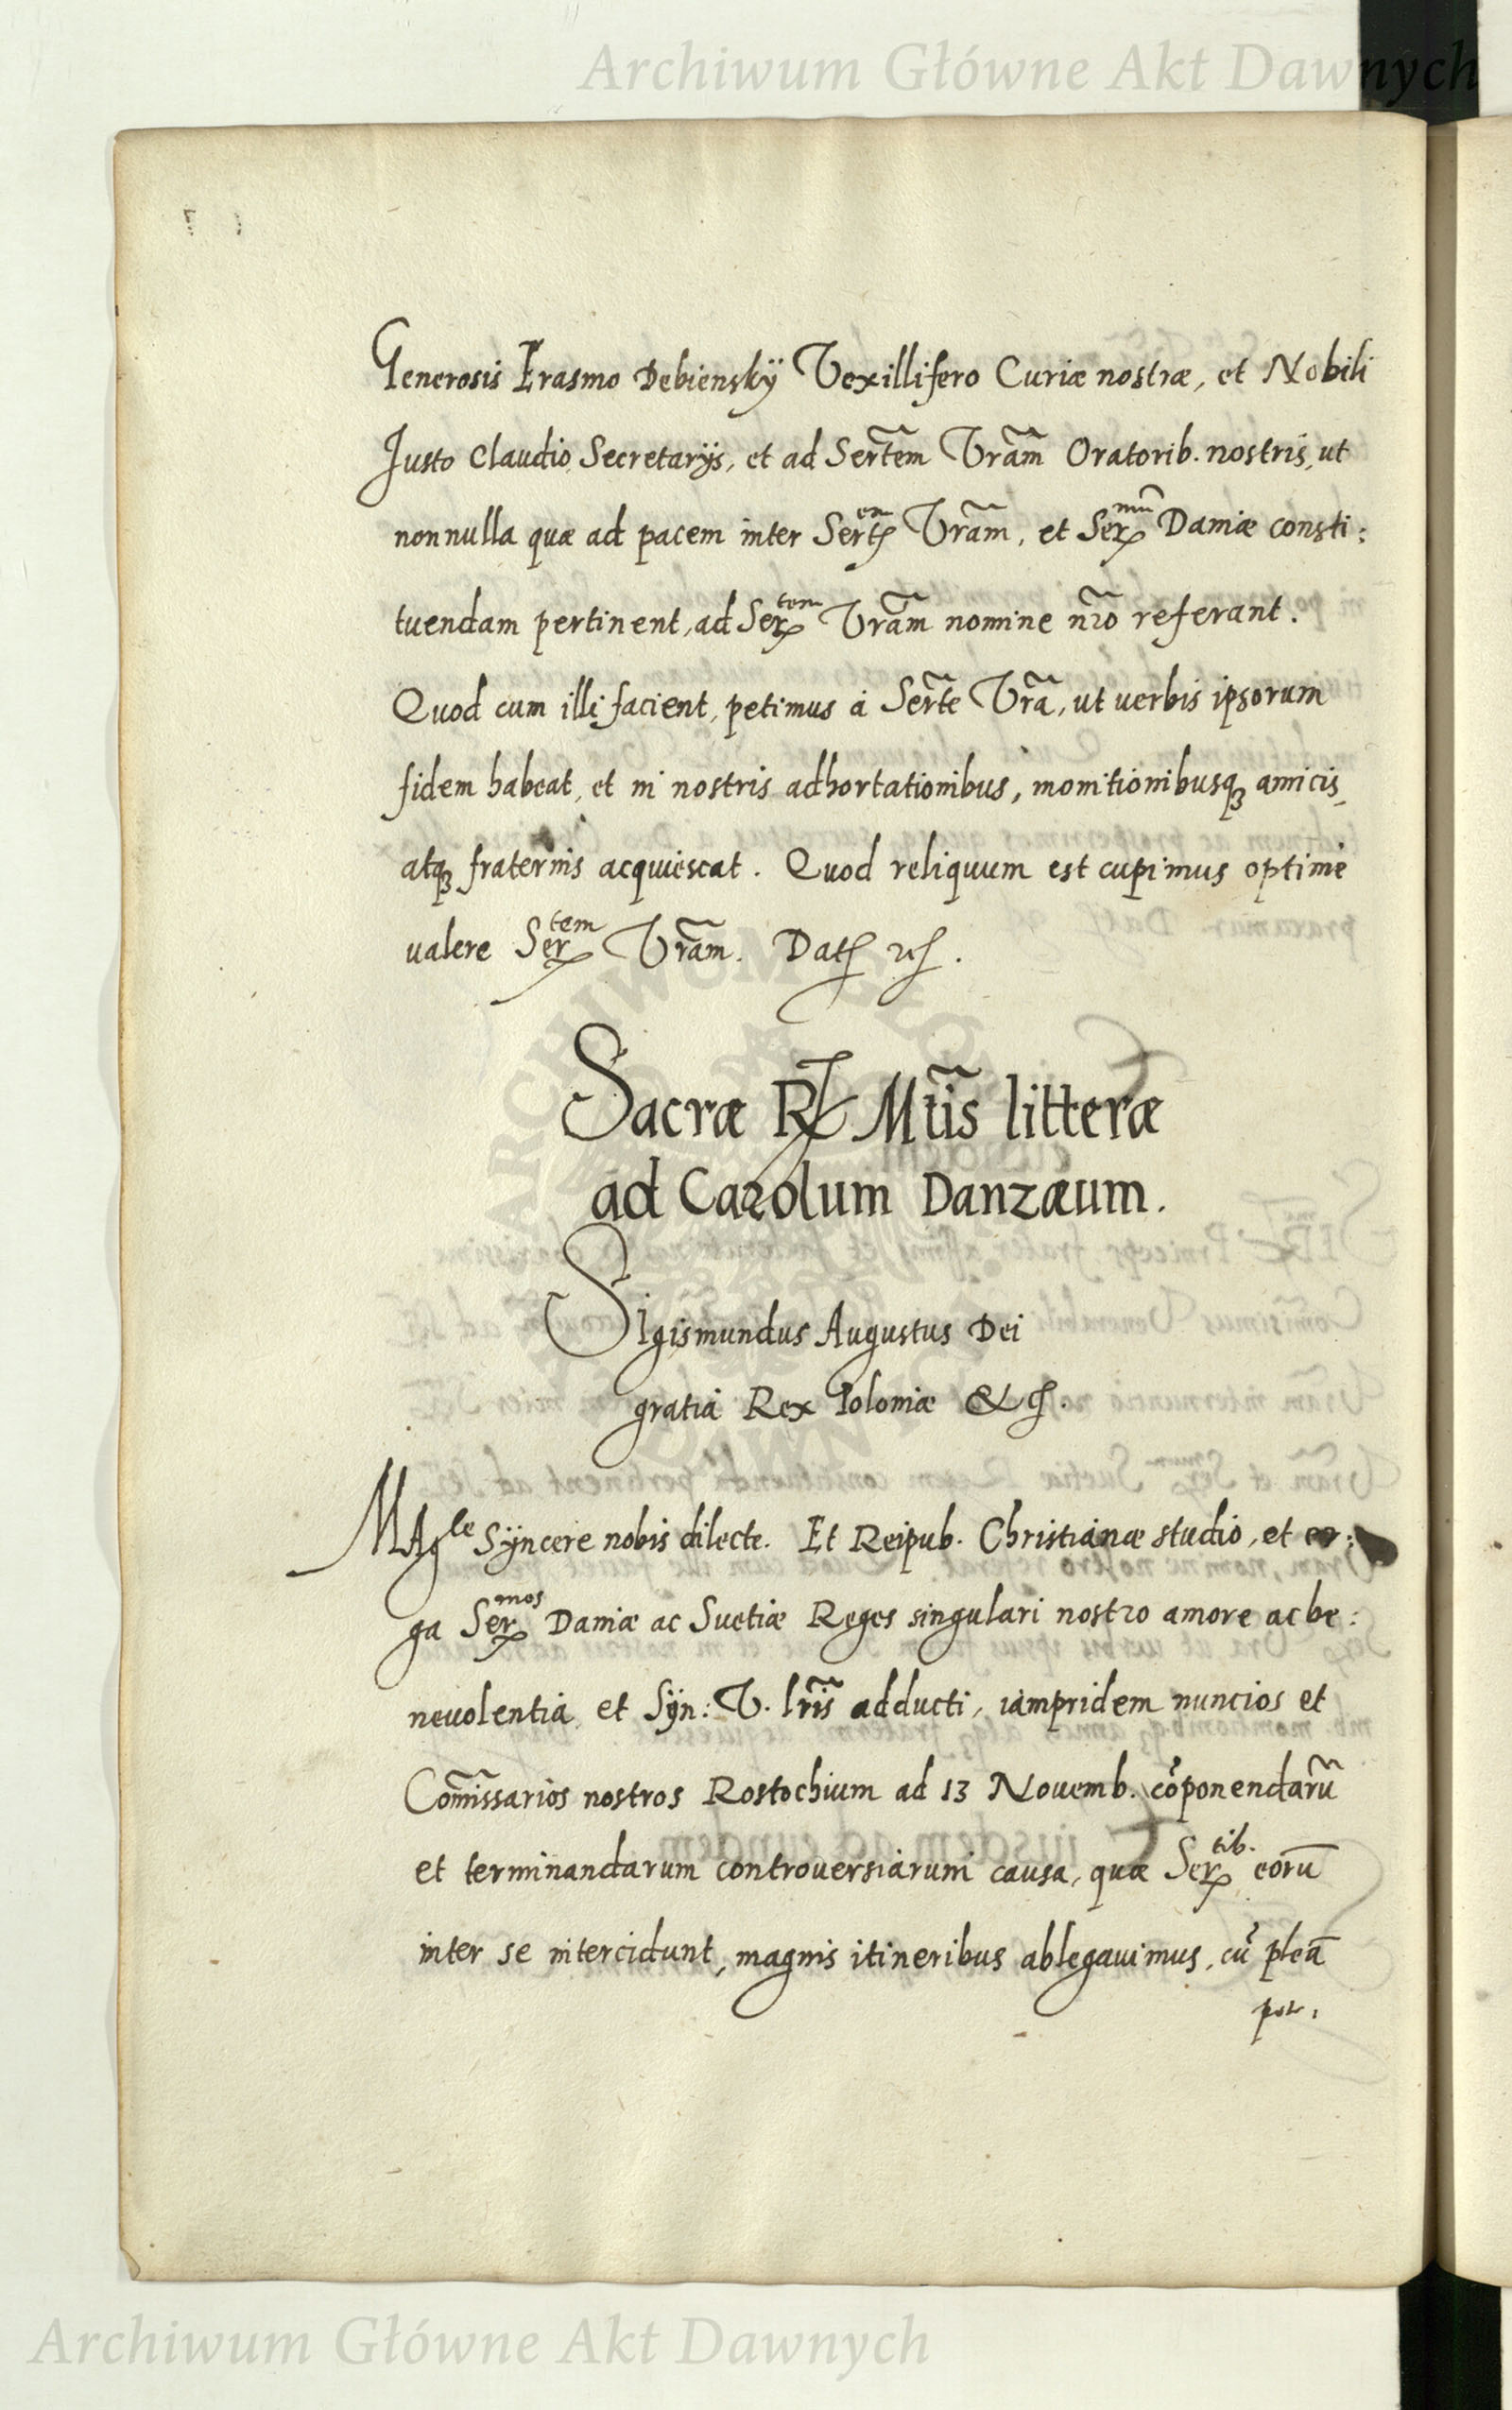 Archiwum Główne Akt Dawnych
Generosis Erasmo Debienskÿ Vexillifero Curiæ nostræ, et Nobili
Justo Claudio Secretarijs, et ad Sertem Vram Oratorib. nostris, ut
nonnulla quæ ad pacem inter Sertem Vram, et Sermũ Daniæ consti:
tuendam pertinent, ad Sertem Vram nomine nro referant.
Quod cum illi facient, petimus à Serte Vra, ut uerbis ipsorum
fidem habeat, et in nostris adhortationibus, monitionibusq; amicis,
atq; fraternis acquiescat. Quod reliquum est cupimus optimè
ualere Sertem Vram. Dat. etc.
Sacræ R. Mtis litteræ
ad Carolum Danzæum.
Sigismundus Augustus Dei
gratia Rex Poloniæ &c.
MAgle Sÿncere nobis dilecte. Et Reipub. Christianæ studio, et er:
ga Sermos Daniæ ac Suetiæ Reges singulari nostro amore ac be:
neuolentia, et Sÿn: V. lris adducti, iampridem nuncios et
Comissarios nostros Rostochium ad 13 Nouemb. cõponendarũ
et terminandarum controuersiarum causa, quæ Sertib. eorũ
inter se intercidunt, magnis itineribus ablegauimus, cũ pleã
pot.
Archiwum Główne Akt Dawnych